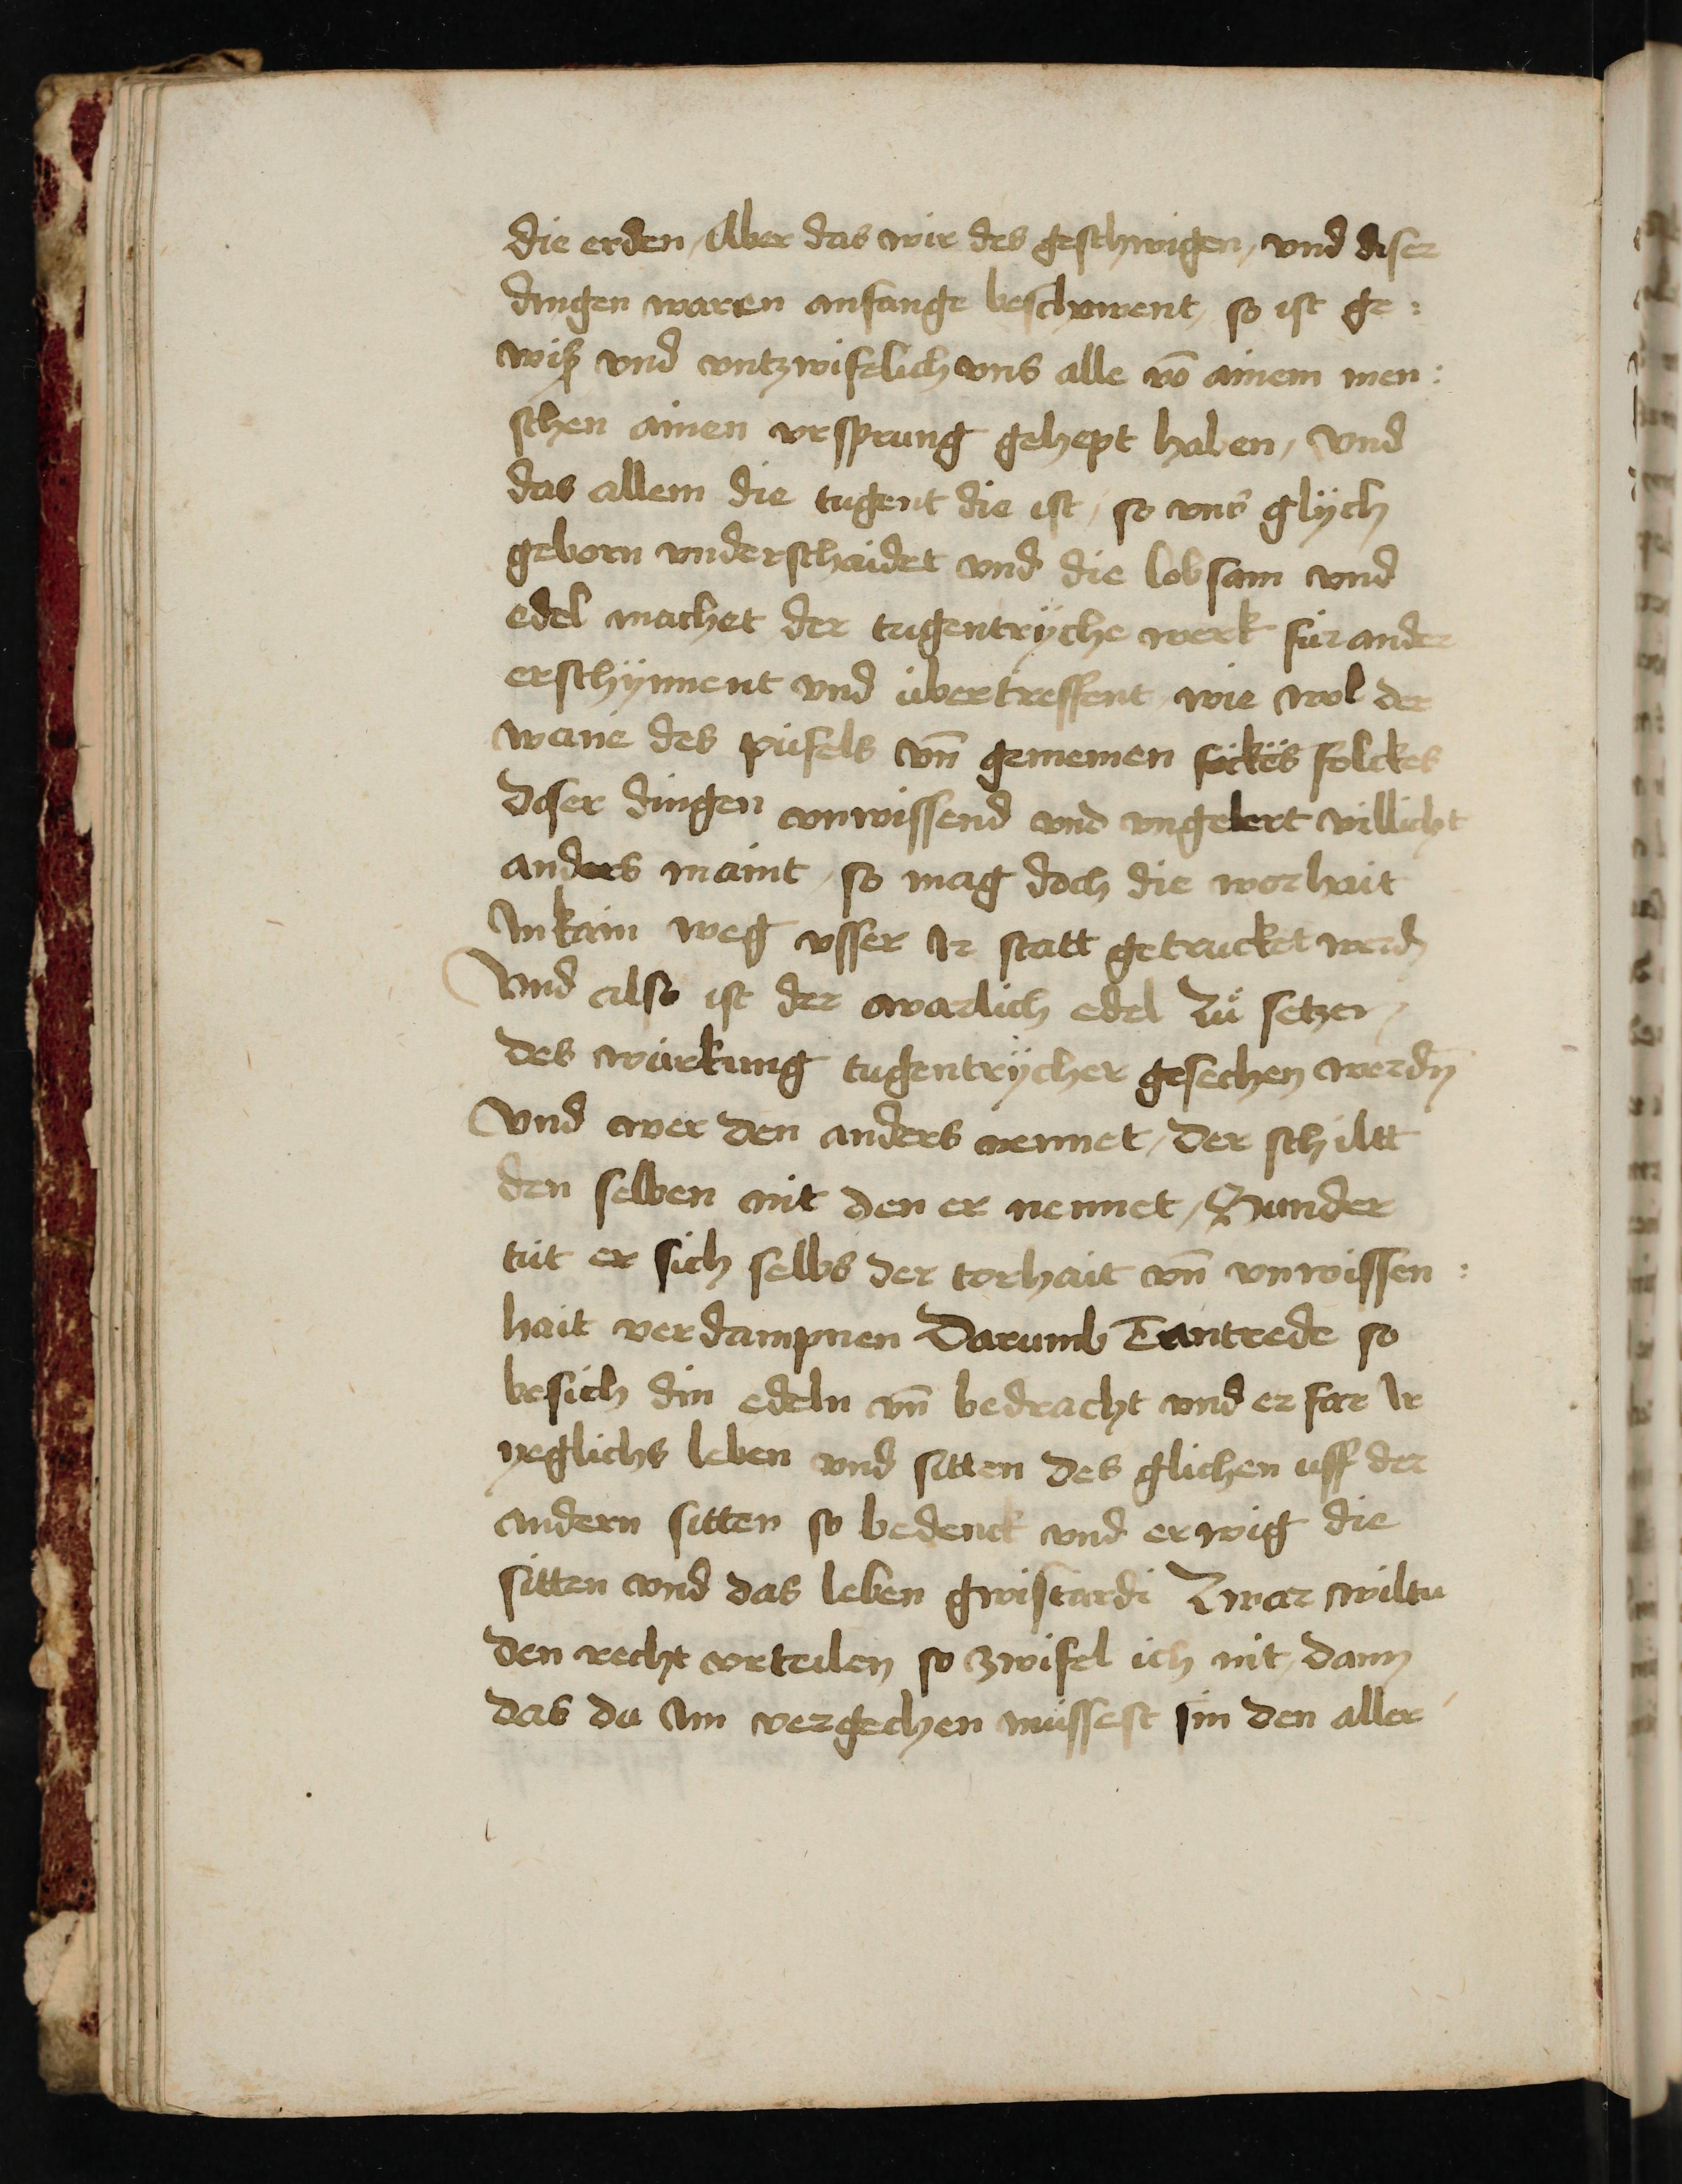 die erden / Aber das wir des geschwigen / vnd diser
dingen waren anfange beschvwent / so ist ge :
wiß vnd vntzwifelich vns alle vō ainem men :
schen ainen vrsprung gehept haben / vnd
das allein die tugent die ist / so vns glÿch
geborn vnderschaidet vnd die lobsam vnd
edel machet der tugentrÿche werk für ander
erschÿnnent vnd übertreffent wie wol der
wane des püfels vn̄ gemeinen folckes
diser dingen vnwissend vnd vngelert villicht
anders maint / so mag doch die worhait
In kain weg vsser Ir statt getrucket werdn̄
Vnd also ist der warlich edel Zů setzen /
des würkung tugentrÿcher gesechen werdn̄
Vnd wer den anders nennet / der schiltt
den selben nit den er nennet / Sunder
tůt er sich selbs der torhait vn̄ vnwissen :
hait verdampnen Darumb Tantrede so
besich din edeln vn̄ bedracht vnd erfar Ir
yeglichs leben vnd sitten des glichen uff der
andern sitten so bedenck vnd erwig die
sitten vnd das leben gwistardi Zwar wiltu
den recht vrteilen so zwifel ich nit / dann
das du Im vergechen müssest sin den aller